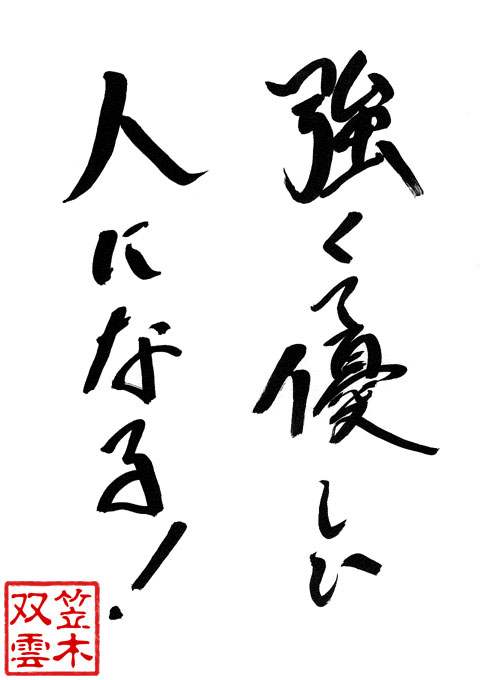 強くて優しい
人になる!
笠木
双雲